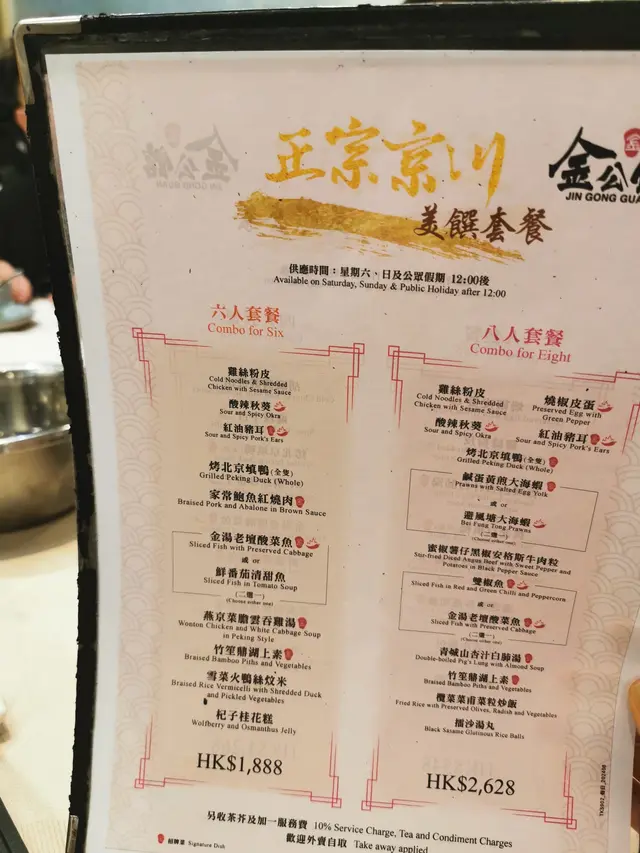 正宗京川
美饌套餐
金公館
JIN GONG GUAN
供應時間：星期六、日及公眾假期 12:00後
Available on Saturday, Sunday & Public Holiday after 12:00
六人套餐
Combo for Six
雞絲粉皮
Cold Noodles & Shredded
Chicken with Sesame Sauce
酸辣秋葵
Sour and Spicy Okra
紅油豬耳
Sour and Spicy Pork's Ears
烤北京填鴨(全隻)
Grilled Peking Duck (Whole)
家常鮑魚紅燒肉
Braised Pork and Abalone in Brown Sauce
金湯老壇酸菜魚
Sliced Fish with Preserved Cabbage
或 or
鮮番茄清甜魚
Sliced Fish in Tomato Soup
(二選一)
(Choose either one)
燕京菜膽雲吞雞湯
Wonton Chicken and White Cabbage Soup
in Peking Style
竹笙鼎湖上素
Braised Bamboo Piths and Vegetables
雪菜火鴨絲炆米
Braised Rice Vermicelli with Shredded Duck
and Pickled Vegetables
杞子桂花糕
Wolfberry and Osmanthus Jelly
HK$1,888
八人套餐
Combo for Eight
雞絲粉皮
Cold Noodles & Shredded
Chicken with Sesame Sauce
燒椒皮蛋
Preserved Egg with
Green Pepper
酸辣秋葵
Sour and Spicy Okra
紅油豬耳
Sour and Spicy Pork's Ears
烤北京填鴨(全隻)
Grilled Peking Duck (Whole)
鹹蛋黃煎大海蝦
Prawns with Salted Egg Yolk
或 or
避風塘大海蝦
Bei Fung Tong Prawns
(二選一)
(Choose either one)
蜜椒薯仔黑椒安格斯牛肉粒
Stir-fried Diced Angus Beef with Sweet Pepper and
Potatoes in Black Pepper Sauce
雙椒魚
Sliced Fish in Red and Green Chilli and Peppercorn
或 or
金湯老壇酸菜魚
Sliced Fish with Preserved Cabbage
(二選一)
(Choose either one)
青欖山杏汁白肺湯
Double-boiled Pig's Lung with Almond Soup
竹笙鼎湖上素
Braised Bamboo Piths and Vegetables
欖菜菜甫菜粒炒飯
Fried Rice with Preserved Olives, Radish and Vegetables
擂沙湯丸
Black Sasame Glutinous Rice Balls
HK$2,628
另收茶芥及加一服務費 10% Service Charge, Tea and Condiment Charges
招牌菜 Signature Dish
歡迎外賣自取 Take away applied